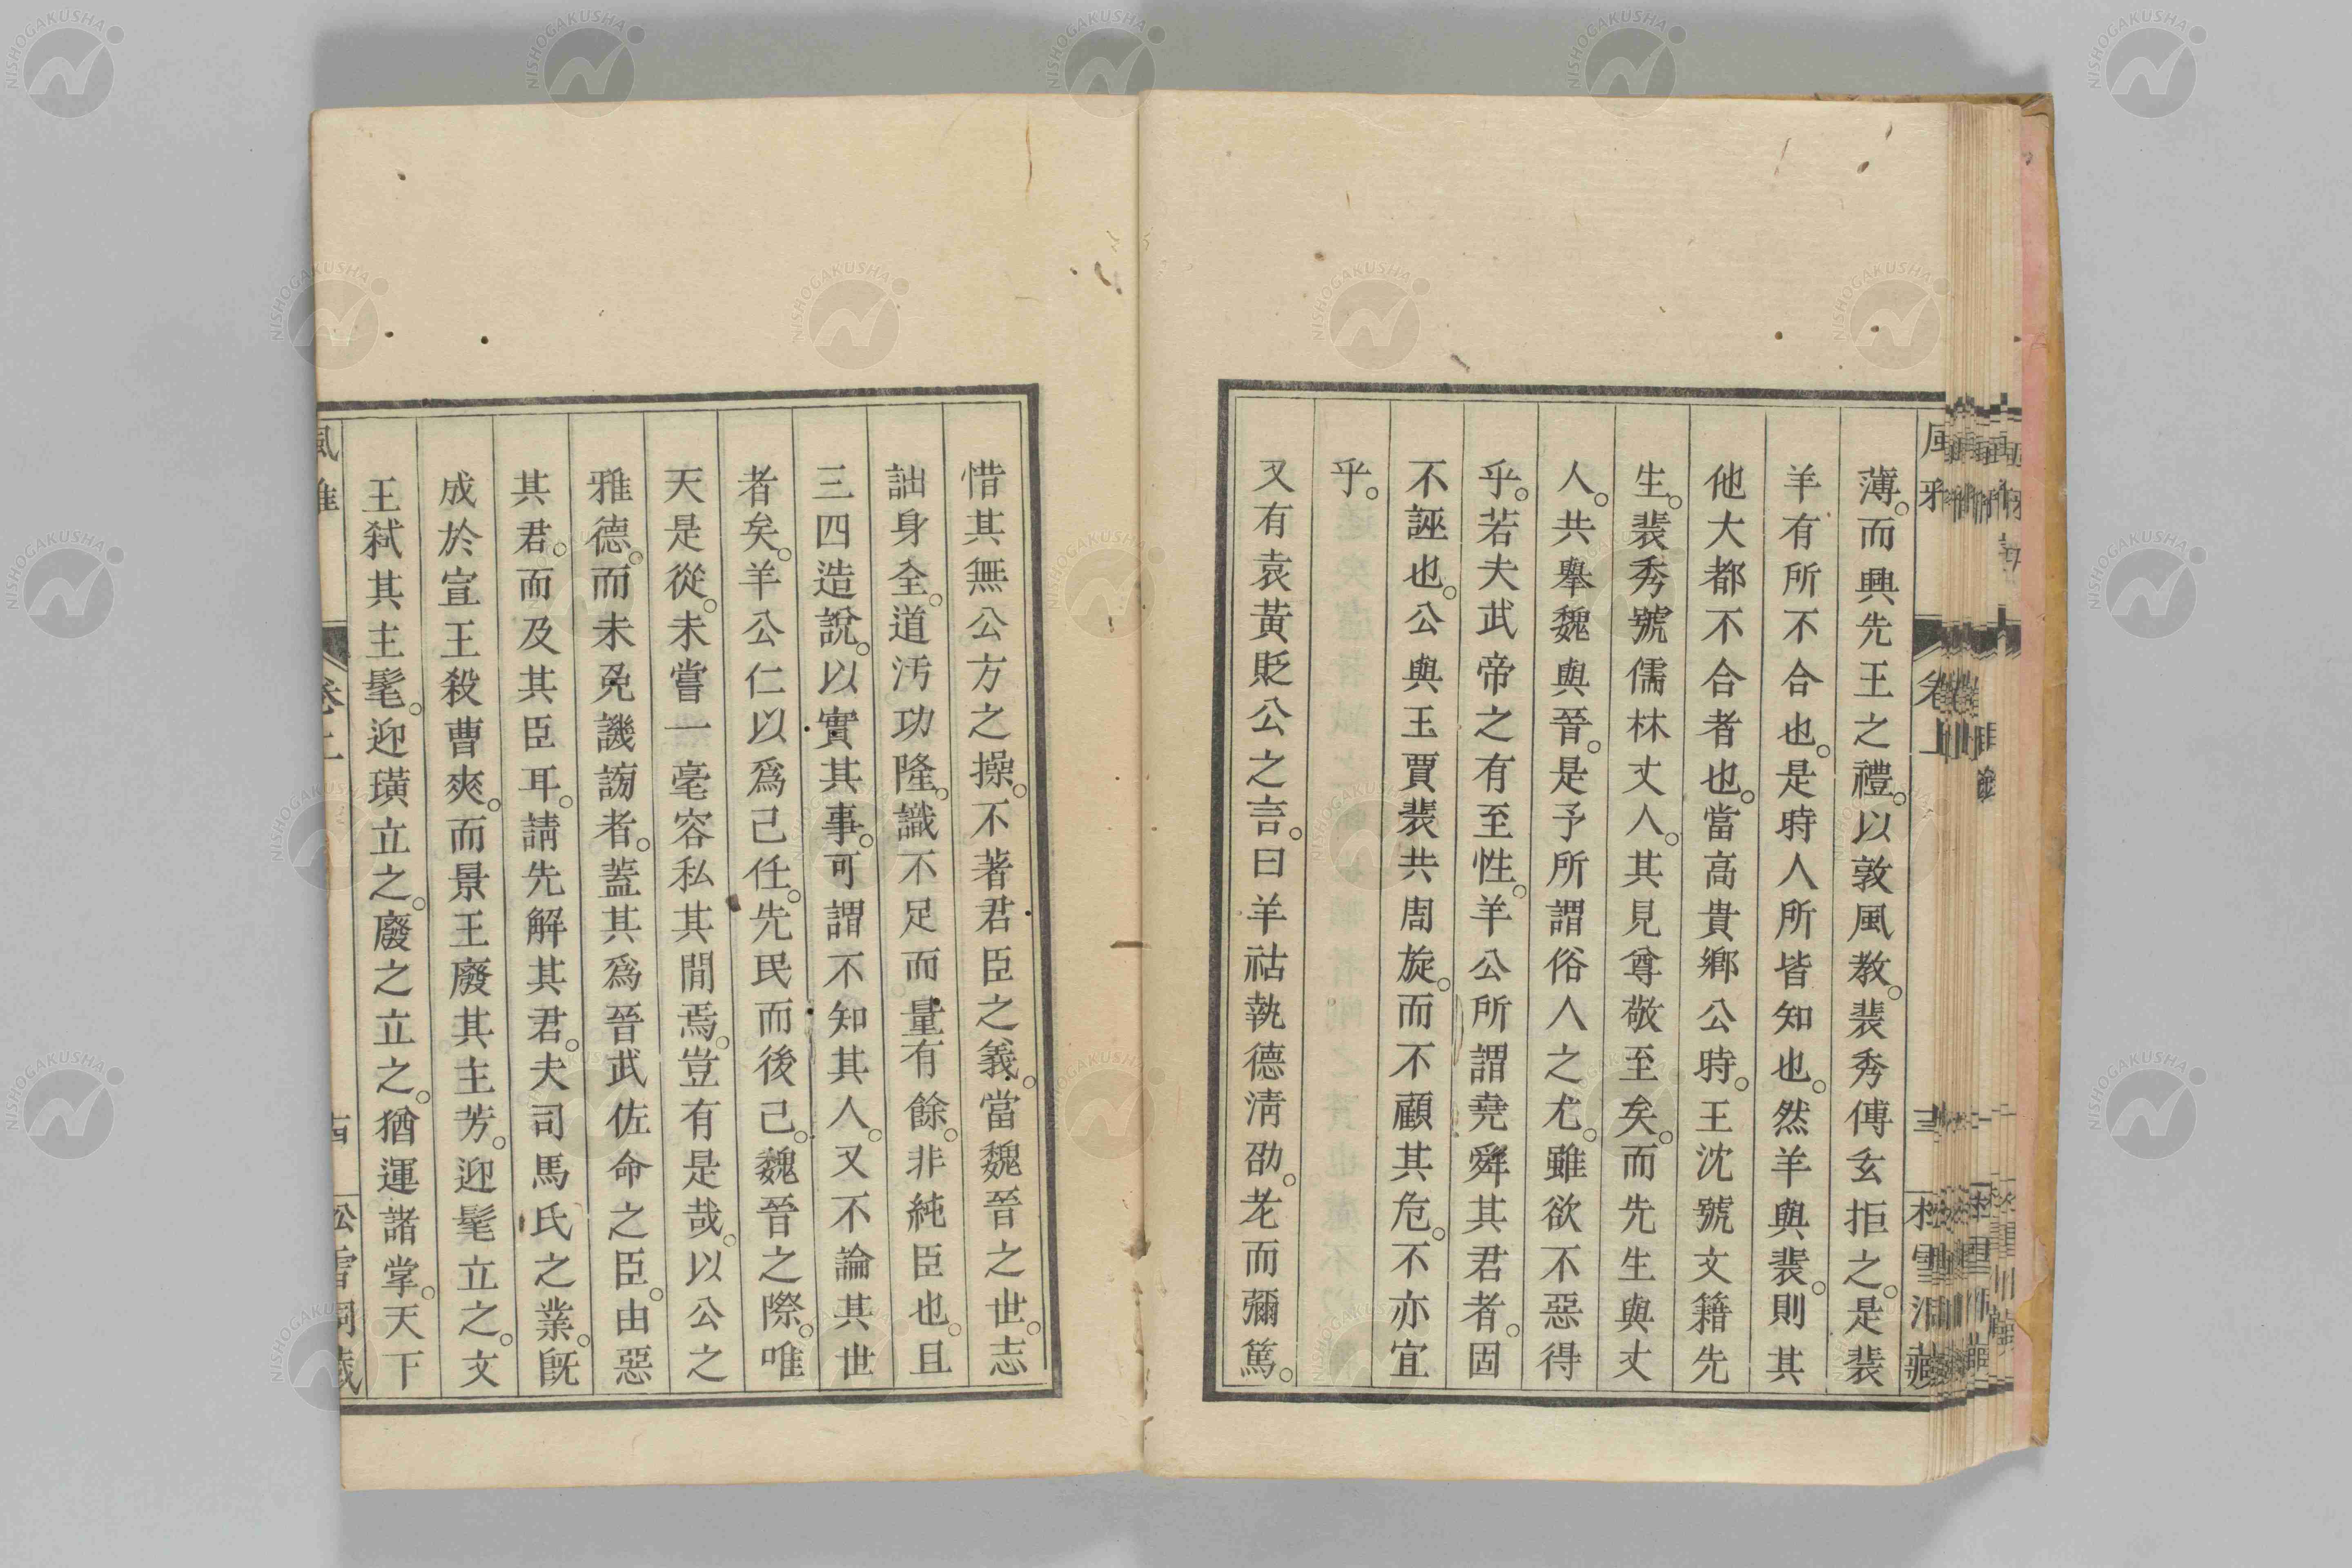 薄。而興先王之禮。以敦風教。裴秀傅玄拒之。是裴
羊有所不合也。是時人所皆知也。然羊與裴。則其
他大都不合者也。當高貴鄉公時。王沈號文籍先
生。裴秀號儒林丈人。其見尊敬至矣。而先生與丈
人。共舉魏與晉。是予所謂俗人之尤。雖欲不惡得
乎。若夫武帝之有至性。羊公所謂堯舜其君者。固
不誣也。公與王賈裴共周旋。而不顧其危。不亦宜
乎。
又有袁黃貶公之言。曰羊祜執德清劭。老而彌篤。
惜其無公方之操。不著君臣之義。當魏晉之世。志
詘身全。道汚功隆。識不足而量有餘。非純臣也。且
三四造說。以實其事。可謂不知其人。又不論其世
者矣。羊公仁以爲己任。先民而後己。魏晉之際。唯
天是從。未嘗一毫容私其間焉。豈有是哉。以公之
雅德。而未免譏謗者。蓋其爲晉武佐命之臣。由惡
其君。而及其臣耳。請先解其君。夫司馬氏之業。旣
成於宣王殺曹爽。而景王廢其主芳。迎髦立之。文
王弒其主髦。迎璜立之。廢之立之。猶運諸掌。天下
NISHOGAKUSHA